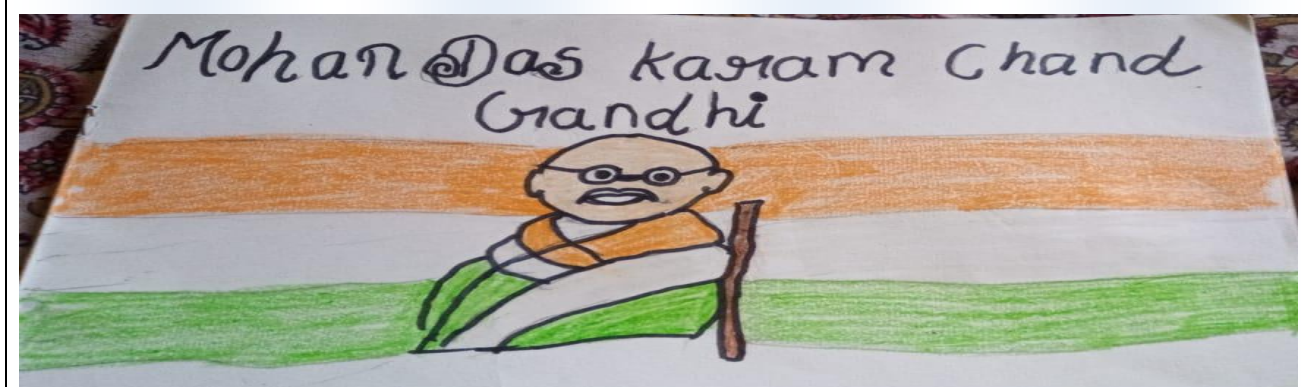 Mohan Das Karam Chand
Gandhi